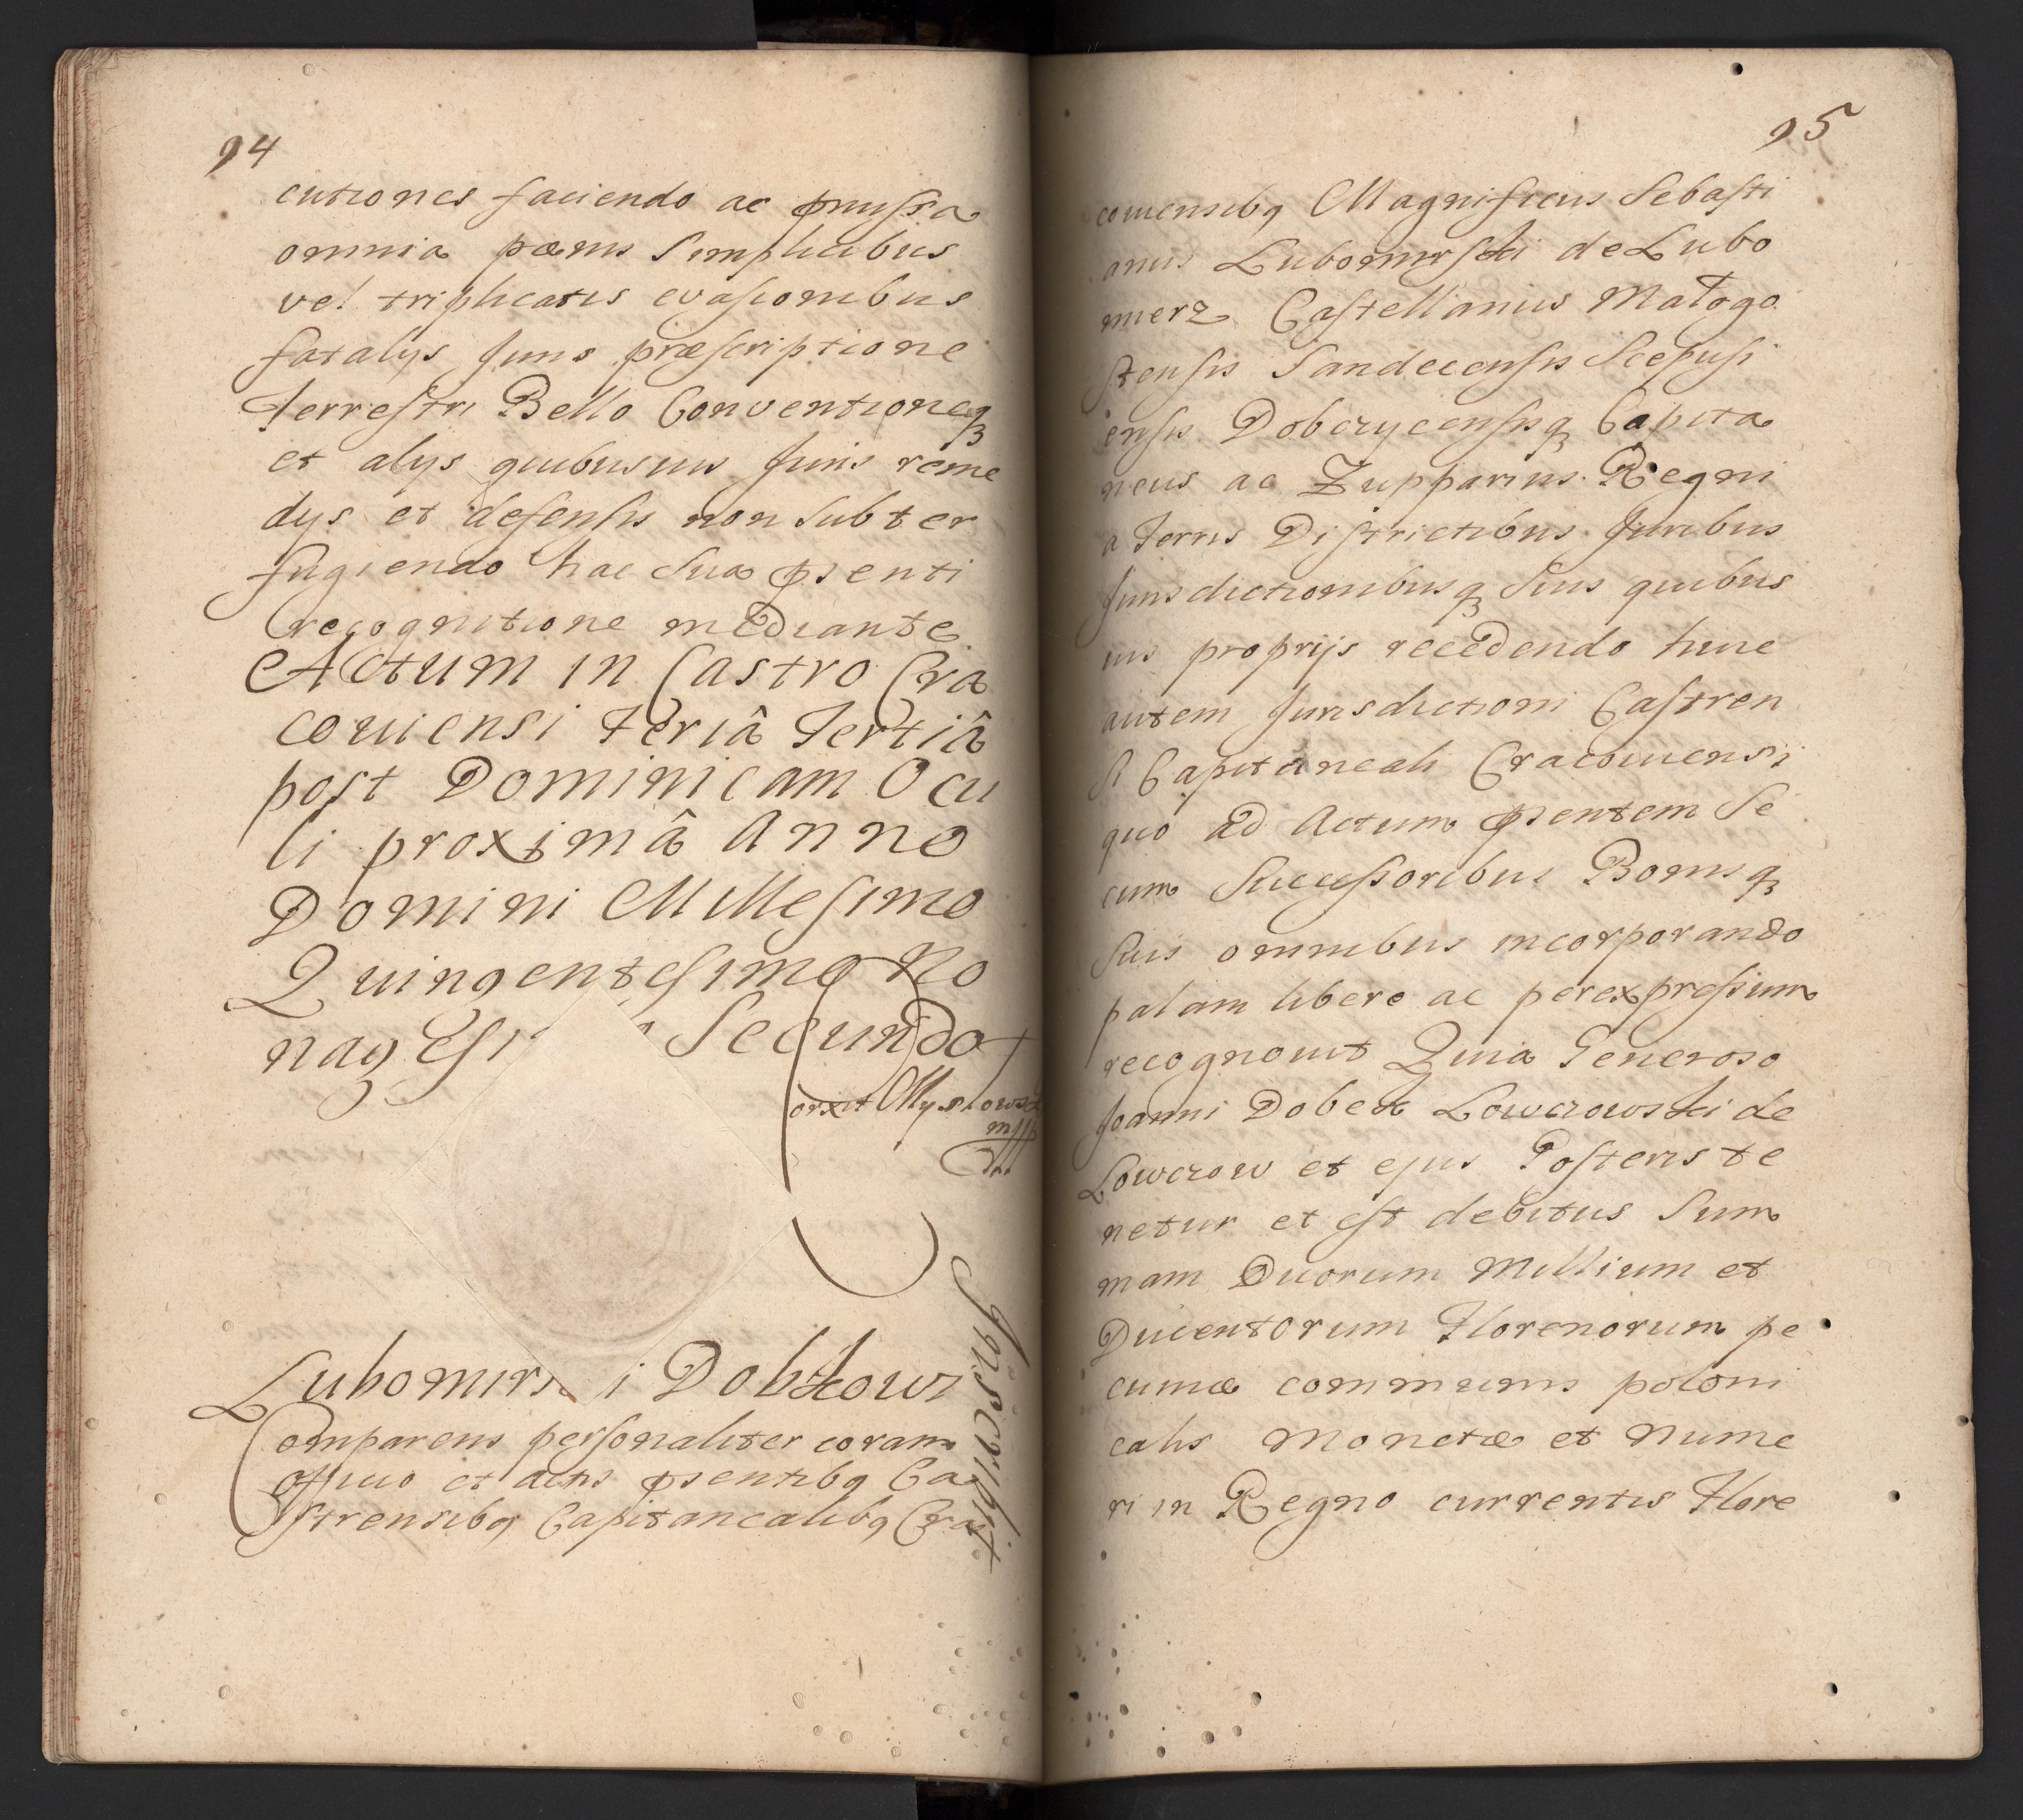 94
cutiones faciendo ac pmissa
omnia pœnis simplicibus
vel triplicatis evasionibus
fatalys Juris præscriptione
Terrestri Bello Conventioneq
et alys quibusuis Juris reme
dys et defensis non subter
fugiendo hac sua psenti
recognitione mediante
Actum in Castro Cra
couiensi Feriâ Tertiâ
post Dominicam Ocu
li proximâ Anno
Domini Millesimo
Quingentesimo No
nagesi Secundo
Corxit Myslowsk
mpp
Lubomirs i Dobkowi
Inscribit
Comparens personaliter coram
officio et actis psentibq Ca
strensibq Capitanealibq Cra
95
couiensibq Magnificus Sebasti
anus Lubomirski de Lubo
mierz Castellanus Małogo
stensis Sandecensis Scepusi
ensis Dobczycensisq Capita
neus ac Zupparius Regni
a Terris Districtibus Juribus
Jurisdictionibusq suis quibus
uis proprijs recedendo hune
autem Jurisdictioni Castren
si Capitaneali Cracouiensi
quo ad Actum psentem se
cum Successoribus Bonisq
suis omnibus incorporando
palam libere ac per expressum
recognouit Quia Generoso
Joanni Dobek Lowczowski de
Lowczow et ejus Posteris te
netur et est debitus Sum
mam Duorum Millium et
Ducentorum Florenorum pe
cuniæ communis poloni
calis Monetæ et Nume
ri in Regno currentis Flore